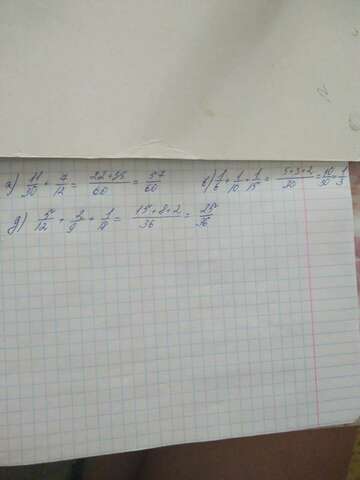 а) 11/30 + 7/12 = 22+35/60 = 57/60 в) 1/6 + 1/10 + 1/15 = 5+3+2/30 = 10/30 = 1/3
д) 5/12 + 2/9 + 1/18 = 15+8+2/36 = 25/36